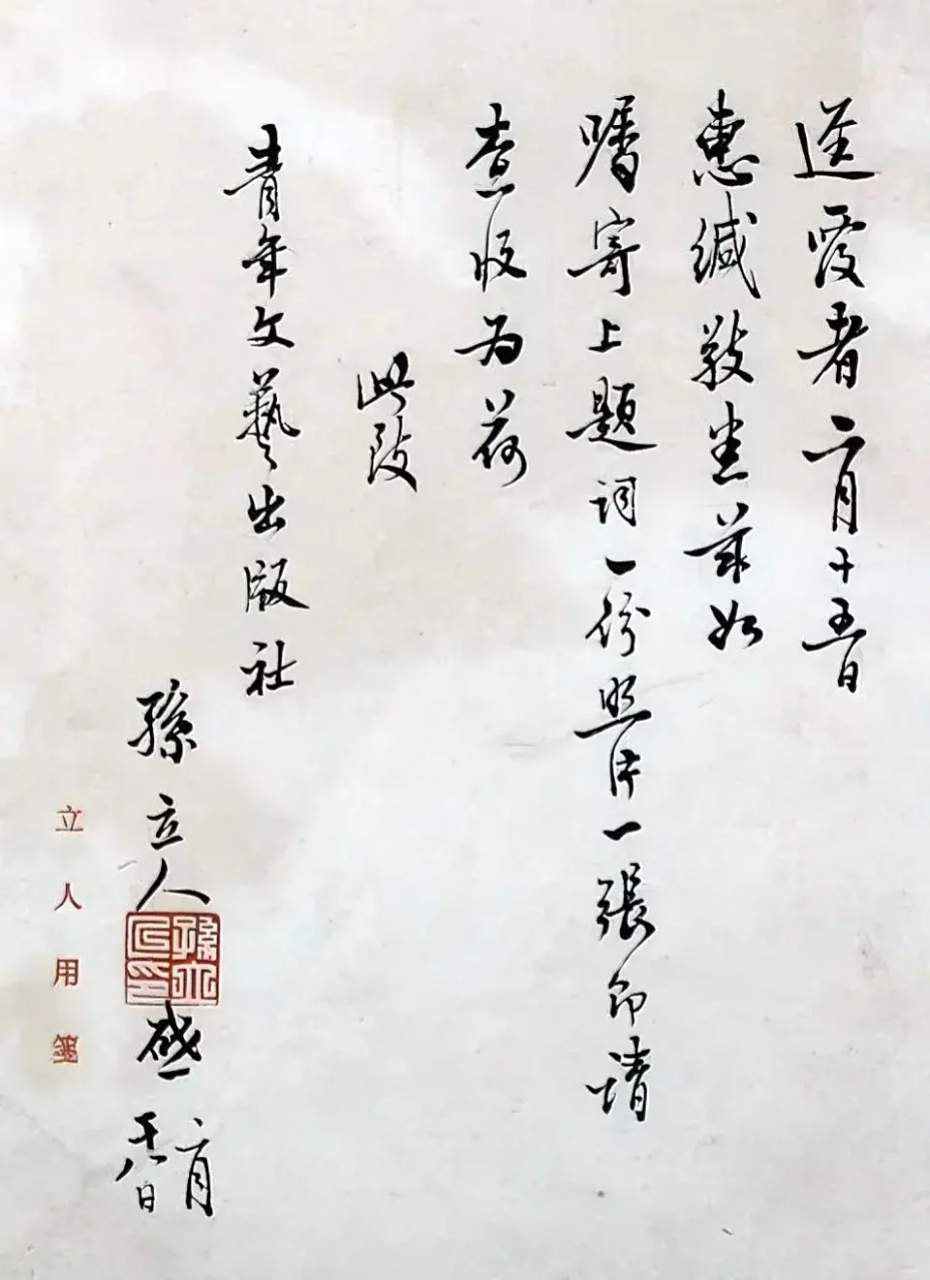 逕覆者二月十五日
惠緘敬悉茲如
囑寄上題詞一份照片一張即請
查收为荷
此致
青年文藝出版社
孫立人啟
二月
十八日
孫立人印
立人用箋